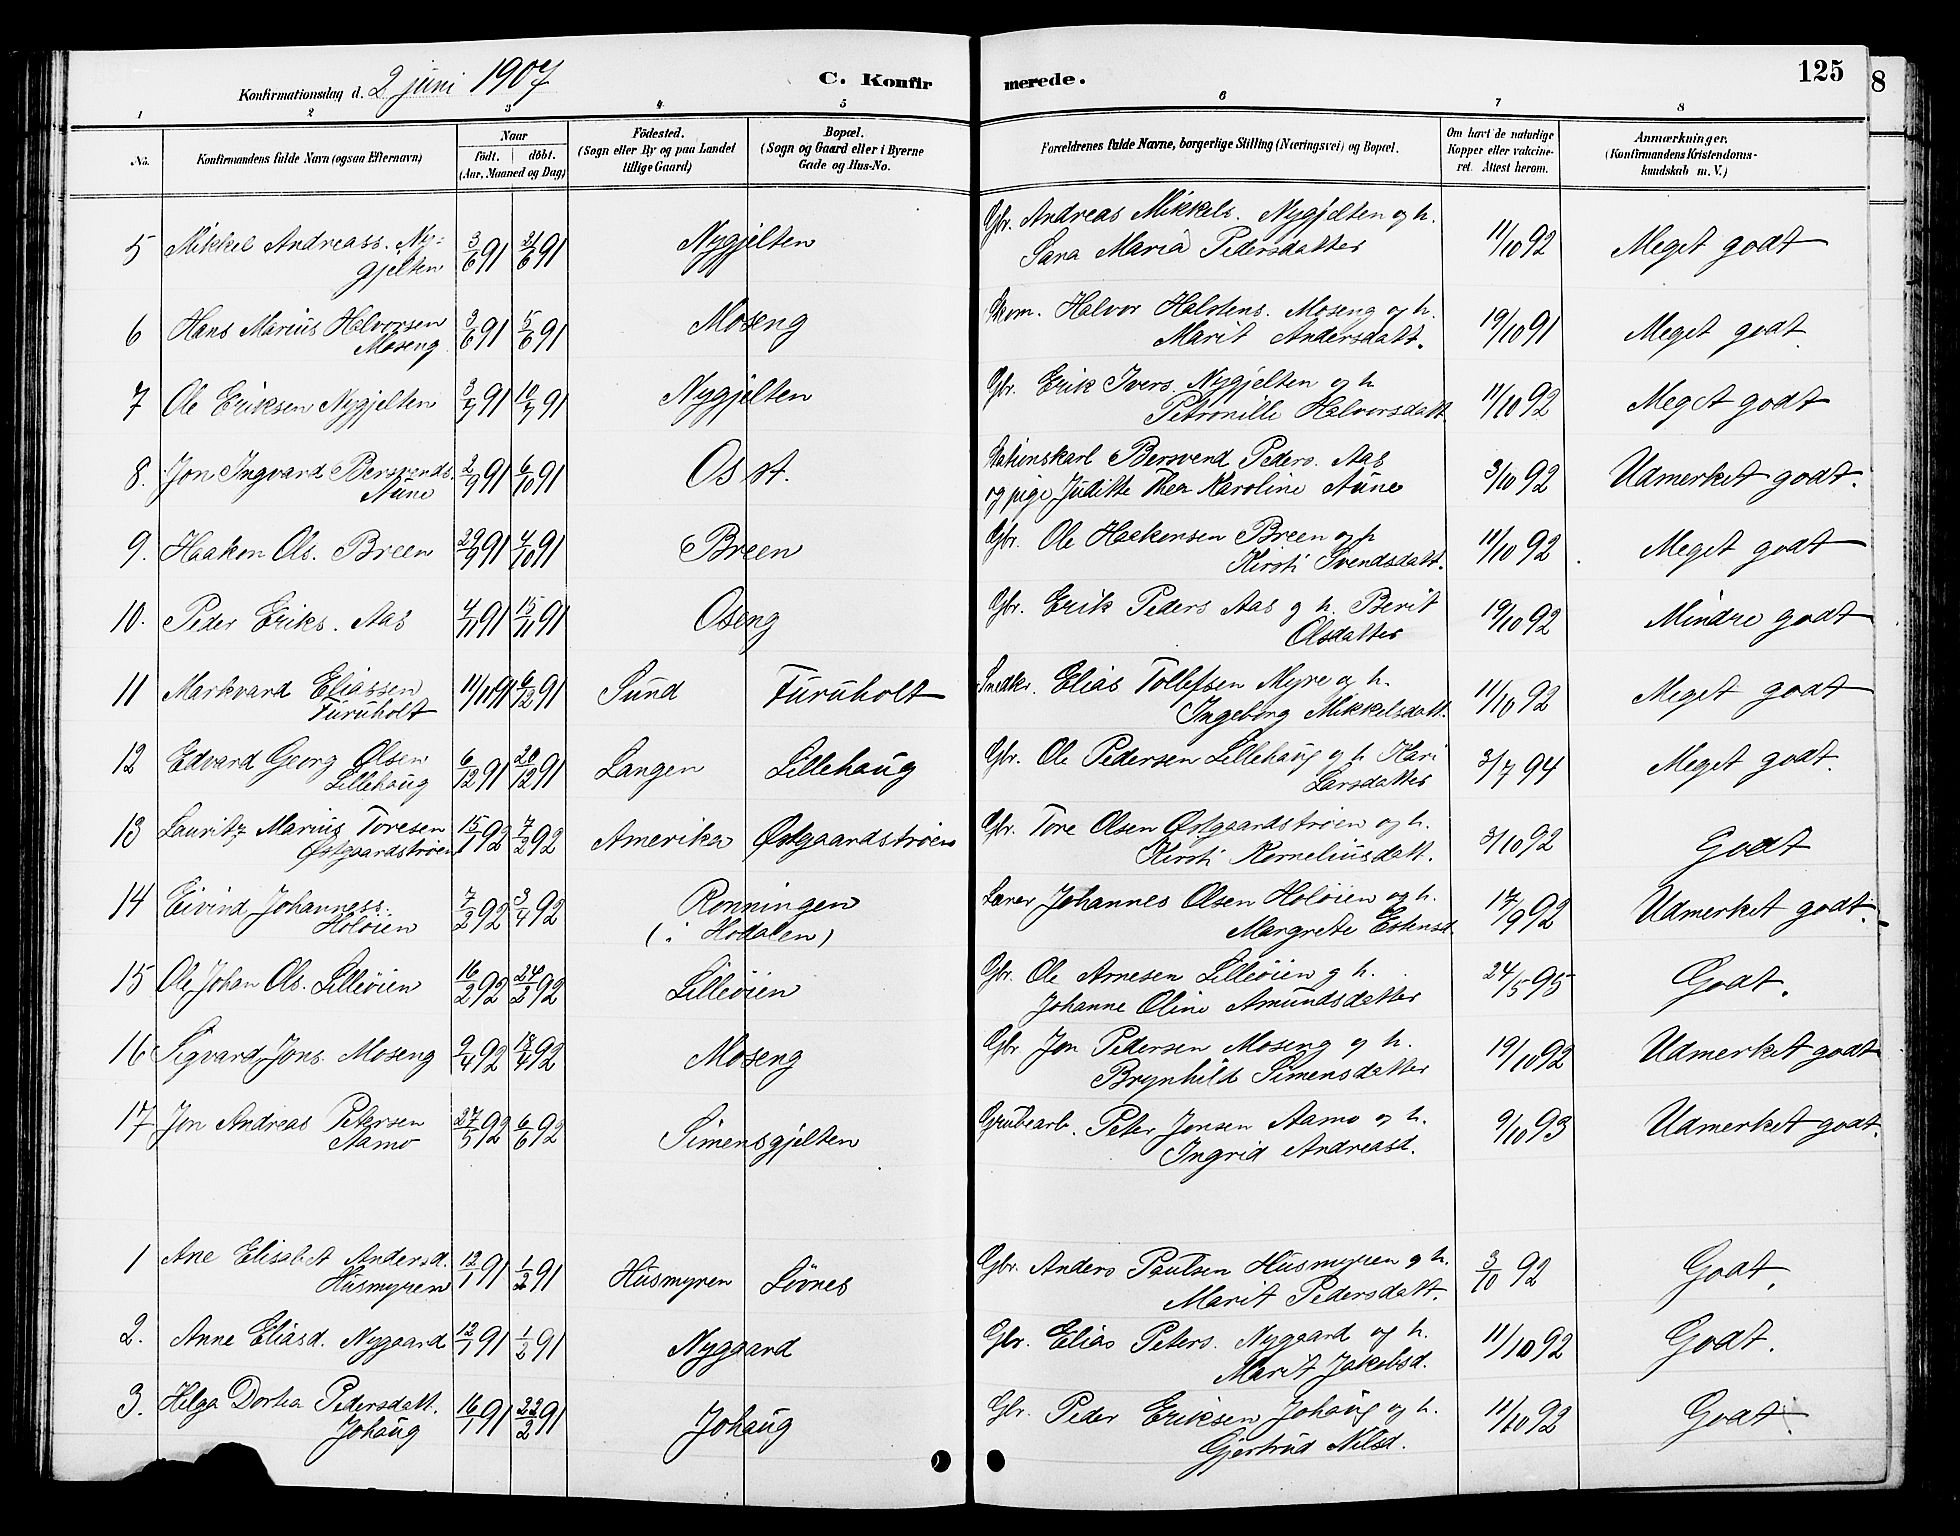 Konfirmationsdag d. 2 juni 1907 C. Konfirmerede. 125
8
1 2 3 4 5 6 7 8
No. Konfirmandens fulde Navn (ogsaa Efternavn) Naar födt. döbt. (Aar, Maaned og Dag) Födested. (Sogn eller By og paa Landet tillige Gaard) Bopæl. (Sogn og Gaard eller i Byerne Gade og Hus-No. Forældrenes fulde Navne, borgerlige Stilling (Næringsvei) og Bopæl. Om havt de naturlige Kopper eller vakcineret. Attest herom. Anmærkninger. (Konfirmandens Kristendomskundskab m. V.)
5 Mikkel Andreass. Ny- 3/6 91 21/6 91 Nygjelten Gbr. Andreas Mikkels. Nygjelten og h. 11/10 92 Meget godt
gjelten Sara Maria Pedersdatter
6 Hans Marius Halvorsen 3/6 91 5/6 91 Moseng Halvor Halstens. Moseng og h. 19/10 91 Meget godt.
Moseng Marit Andersdatt.
7 Ole Eriksen Nygjelten 3/7 91 10/7 91 Nygjelten Gbr. Erik Ivers. Nygjelten og h 11/10 92 Meget godt
Petronille Halvorsdatt
8. Jon Ingvard Bersvends. 2/9 91 6/10 91 Os st. Stationskarl Bersvend Peders. Aas 3/10 92 Udmerket godt.
Aune og pige Juditte Thea Karoline Aune
9. Haakon Ols. Breen 29/9 91 4/10 91 Breen Gbr. Ole Haakensen Breen og h 11/10 92 Meget godt
Kirsti Svendsdatt.
10. Peder Eriks. Aas 4/11 91 15/11 91 Oseng Gbr. Erik Peders Aas g h. Berit 19/10 92 Mindre godt
Olsdatter
11 Markvard Eliassen 11/11 91 6/12 91 Sund Furuholt Snedkr. Elias Tollefsen Myre og h. 11/10 92 Meget godt
Furuholt Ingeborg Mikkelsdatt.
12 Edvard Georg Olsen 6/12 91 20/12 91 Langen Lillehaug Gbr. Ole Pedersen Lillehaug g h Kari 3/7 94 Meget godt.
Lillehaug Larsdatter
13 Lauritz Marius Toresen 15/1 92 7/2 92 Amerika Østgaardstrøen Gbr. Tore Olsen Østgaardstrøen og h. 3/10 92 Godt
Østgaardstrøen Kirsti Korneliusdatt.
14 Eivind Johanness. 7/2 92 3/4 92 Ronningen Lærer Johannes Olsen Holøien og h. 17/9 92 Udmerket godt.
Holøien (i Hodalen) Margrete Estensd
15 Ole Johan Ols. Lilleøien 16/2 92 24/2 92 Lilleøien Gbr. Ole Arnesen Lilleøien g h. 24/5 95 Godt.
Johanne Oline Amundsdatter
16 Sigvard Jons. Moseng 2/4 92 18/4 92 Moseng Gbr Jon Pedersen Moseng og h. 19/10 92 Udmerket godt
Brynhild Simensdatter
17 Jon Andreas Petersen 27/5 92 6/6 92 Simensgjelten Grubearb. Peter Jonsen Aamo og h. 9/10 93 Udmerket godt.
Aamo Ingrid Andreasd.
1 Ane Elisabet Andersd. 12/1 91 1/2 91 Husmyren Løvnes Gbr. Anders Paulsen Husmyren g h. 3/10 92 Godt.
Husmyren Marit Pedersdatt.
2. Anne Eliasd. Nygaard 12/1 91 1/2 91 Nygaard Gbr. Elias Peters. Nygaard og h. 11/10 92 Godt.
Marit Jakobsd.
3. Helga Dortea Pedersdatt. 16/1 91 22/2 91 Johaug Gbr. Peder Eriksen Johaug og h. 11/10 92 Godt.
Johaug Gjertrud Nilsd.